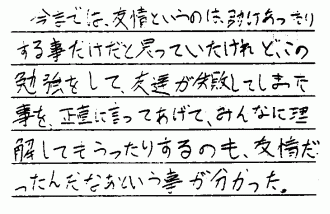 今まては、友情というのは、助けあったり
する事だけだと思っていたけれど、この
勉強をして、友達が失敗してしまった
事を、正直に言ってあげて、みんなに理
解してもらったりするのも、友情だ
ったんだなあという事が分かった。